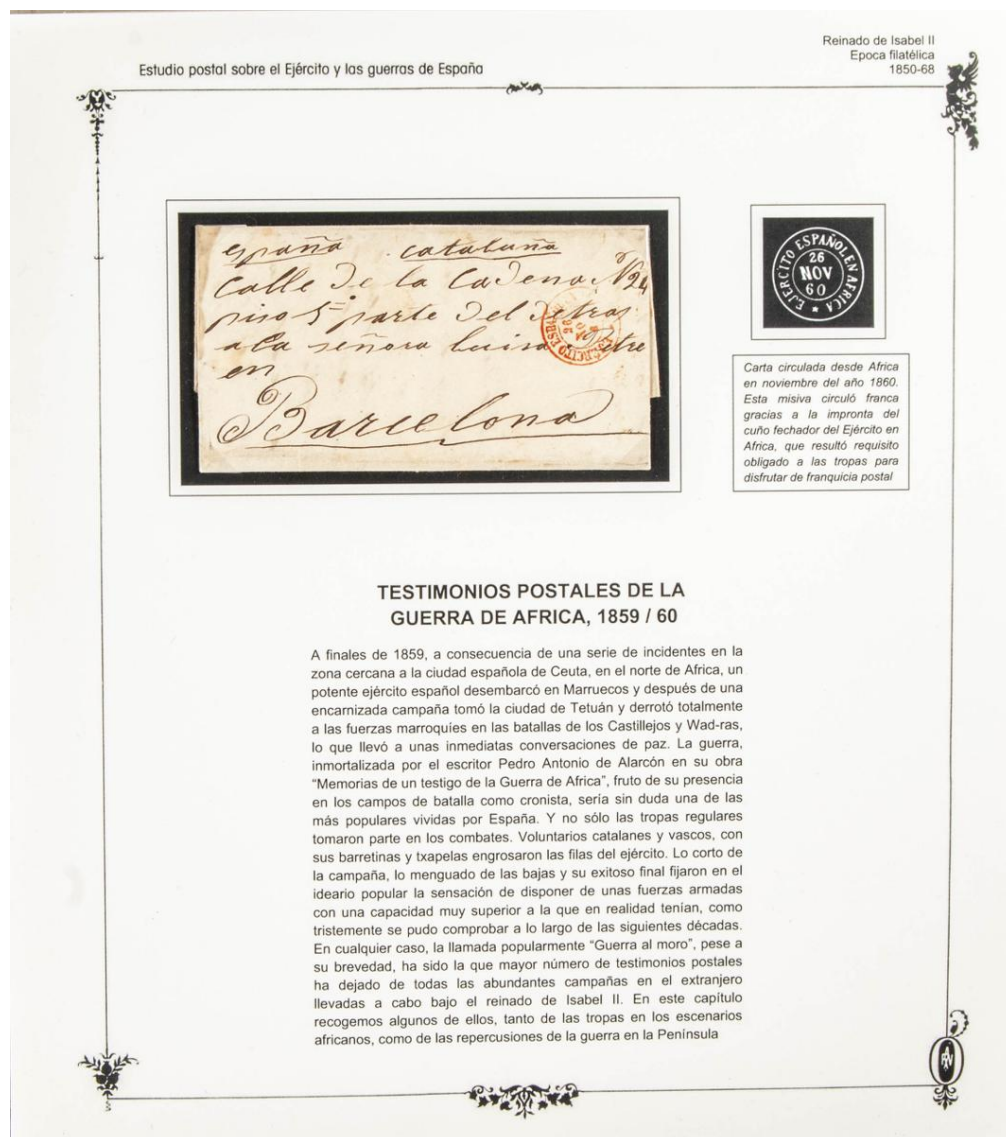 Reinado de Isabel II
Epoca filatélica
1850-68
Estudio postal sobre el Ejército y las guerras de España
españa cataluña
Calle De la CaDena N24
piso 5º parte Del Detras
ala señora luisa
en
Barcelona
EJERCITO ESPAÑOL EN AFRICA
26
NOV
60
Carta circulada desde Africa
en noviembre del año 1860.
Esta misiva circuló franca
gracias a la impronta del
cuño fechador del Ejército en
Africa, que resultó requisito
obligado a las tropas para
disfrutar de franquicia postal
TESTIMONIOS POSTALES DE LA
GUERRA DE AFRICA, 1859 / 60
A finales de 1859, a consecuencia de una serie de incidentes en la
zona cercana a la ciudad española de Ceuta, en el norte de Africa, un
potente ejército español desembarcó en Marruecos y después de una
encarnizada campaña tomó la ciudad de Tetuán y derrotó totalmente
a las fuerzas marroquíes en las batallas de los Castillejos y Wad-ras,
lo que llevó a unas inmediatas conversaciones de paz. La guerra,
inmortalizada por el escritor Pedro Antonio de Alarcón en su obra
“Memorias de un testigo de la Guerra de Africa”, fruto de su presencia
en los campos de batalla como cronista, sería sin duda una de las
más populares vividas por España. Y no sólo las tropas regulares
tomaron parte en los combates. Voluntarios catalanes y vascos, con
sus barretinas y txapelas engrosaron las filas del ejército. Lo corto de
la campaña, lo menguado de las bajas y su exitoso final fijaron en el
ideario popular la sensación de disponer de unas fuerzas armadas
con una capacidad muy superior a la que en realidad tenían, como
tristemente se pudo comprobar a lo largo de las siguientes décadas.
En cualquier caso, la llamada popularmente “Guerra al moro”, pese a
su brevedad, ha sido la que mayor número de testimonios postales
ha dejado de todas las abundantes campañas en el extranjero
llevadas a cabo bajo el reinado de Isabel II. En este capítulo
recogemos algunos de ellos, tanto de las tropas en los escenarios
africanos, como de las repercusiones de la guerra en la Península